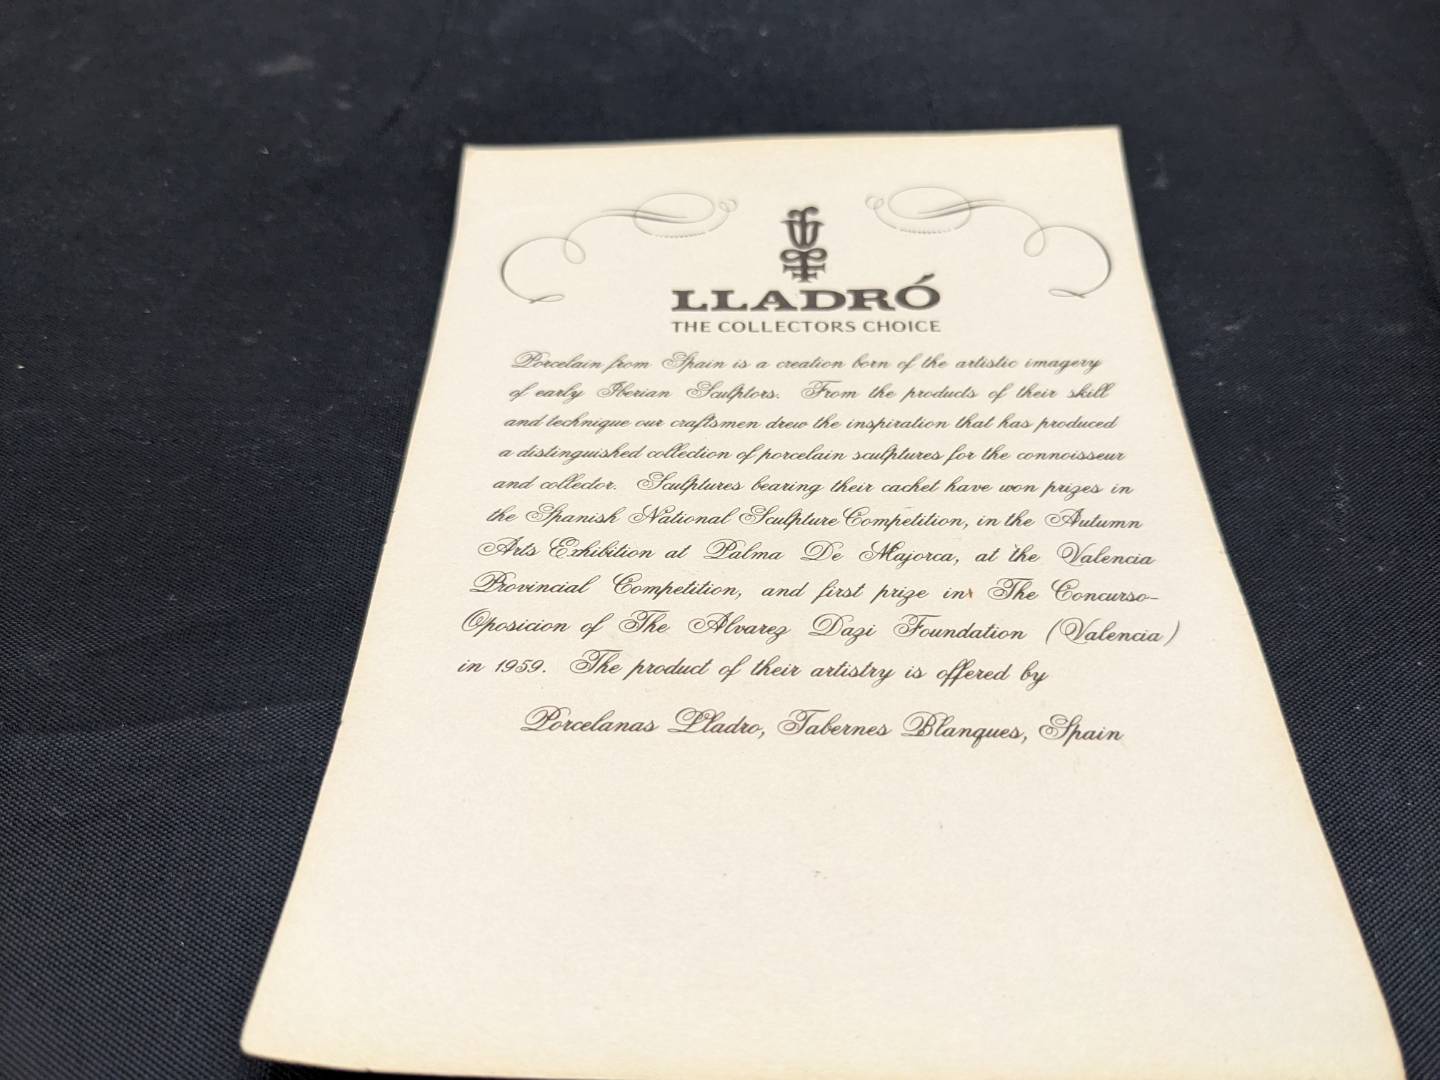 LLADRÓ
THE COLLECTORS CHOICE
Porcelain from Spain is a creation born of the artistic imagery
of early Iberian Sculptors. From the products of their skill
and technique our craftsmen drew the inspiration that has produced
a distinguished collection of porcelain sculptures for the connoisseur
and collector. Sculptures bearing their cachet have won prizes in
the Spanish National Sculpture Competition, in the Autumn
Arts Exhibition at Palma De Majorca, at the Valencia
Provincial Competition, and first prize in The Concurso-
Oposicion of The Alvarez Dazi Foundation (Valencia)
in 1959. The product of their artistry is offered by
Porcelanas Lladro, Tabernes Blanques, Spain